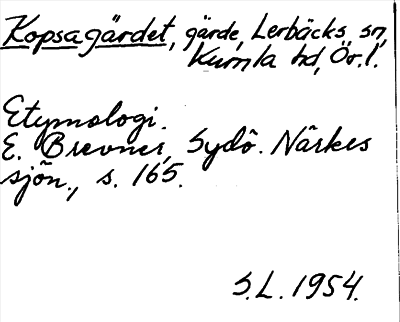 Kopsagärdet, gärde, Lerbäcks sn,
Kumla hd, Ör.l.
Etymologi.
E. Brevner, Sydö. Närkes
sjön., s. 165.
S.L. 1954.